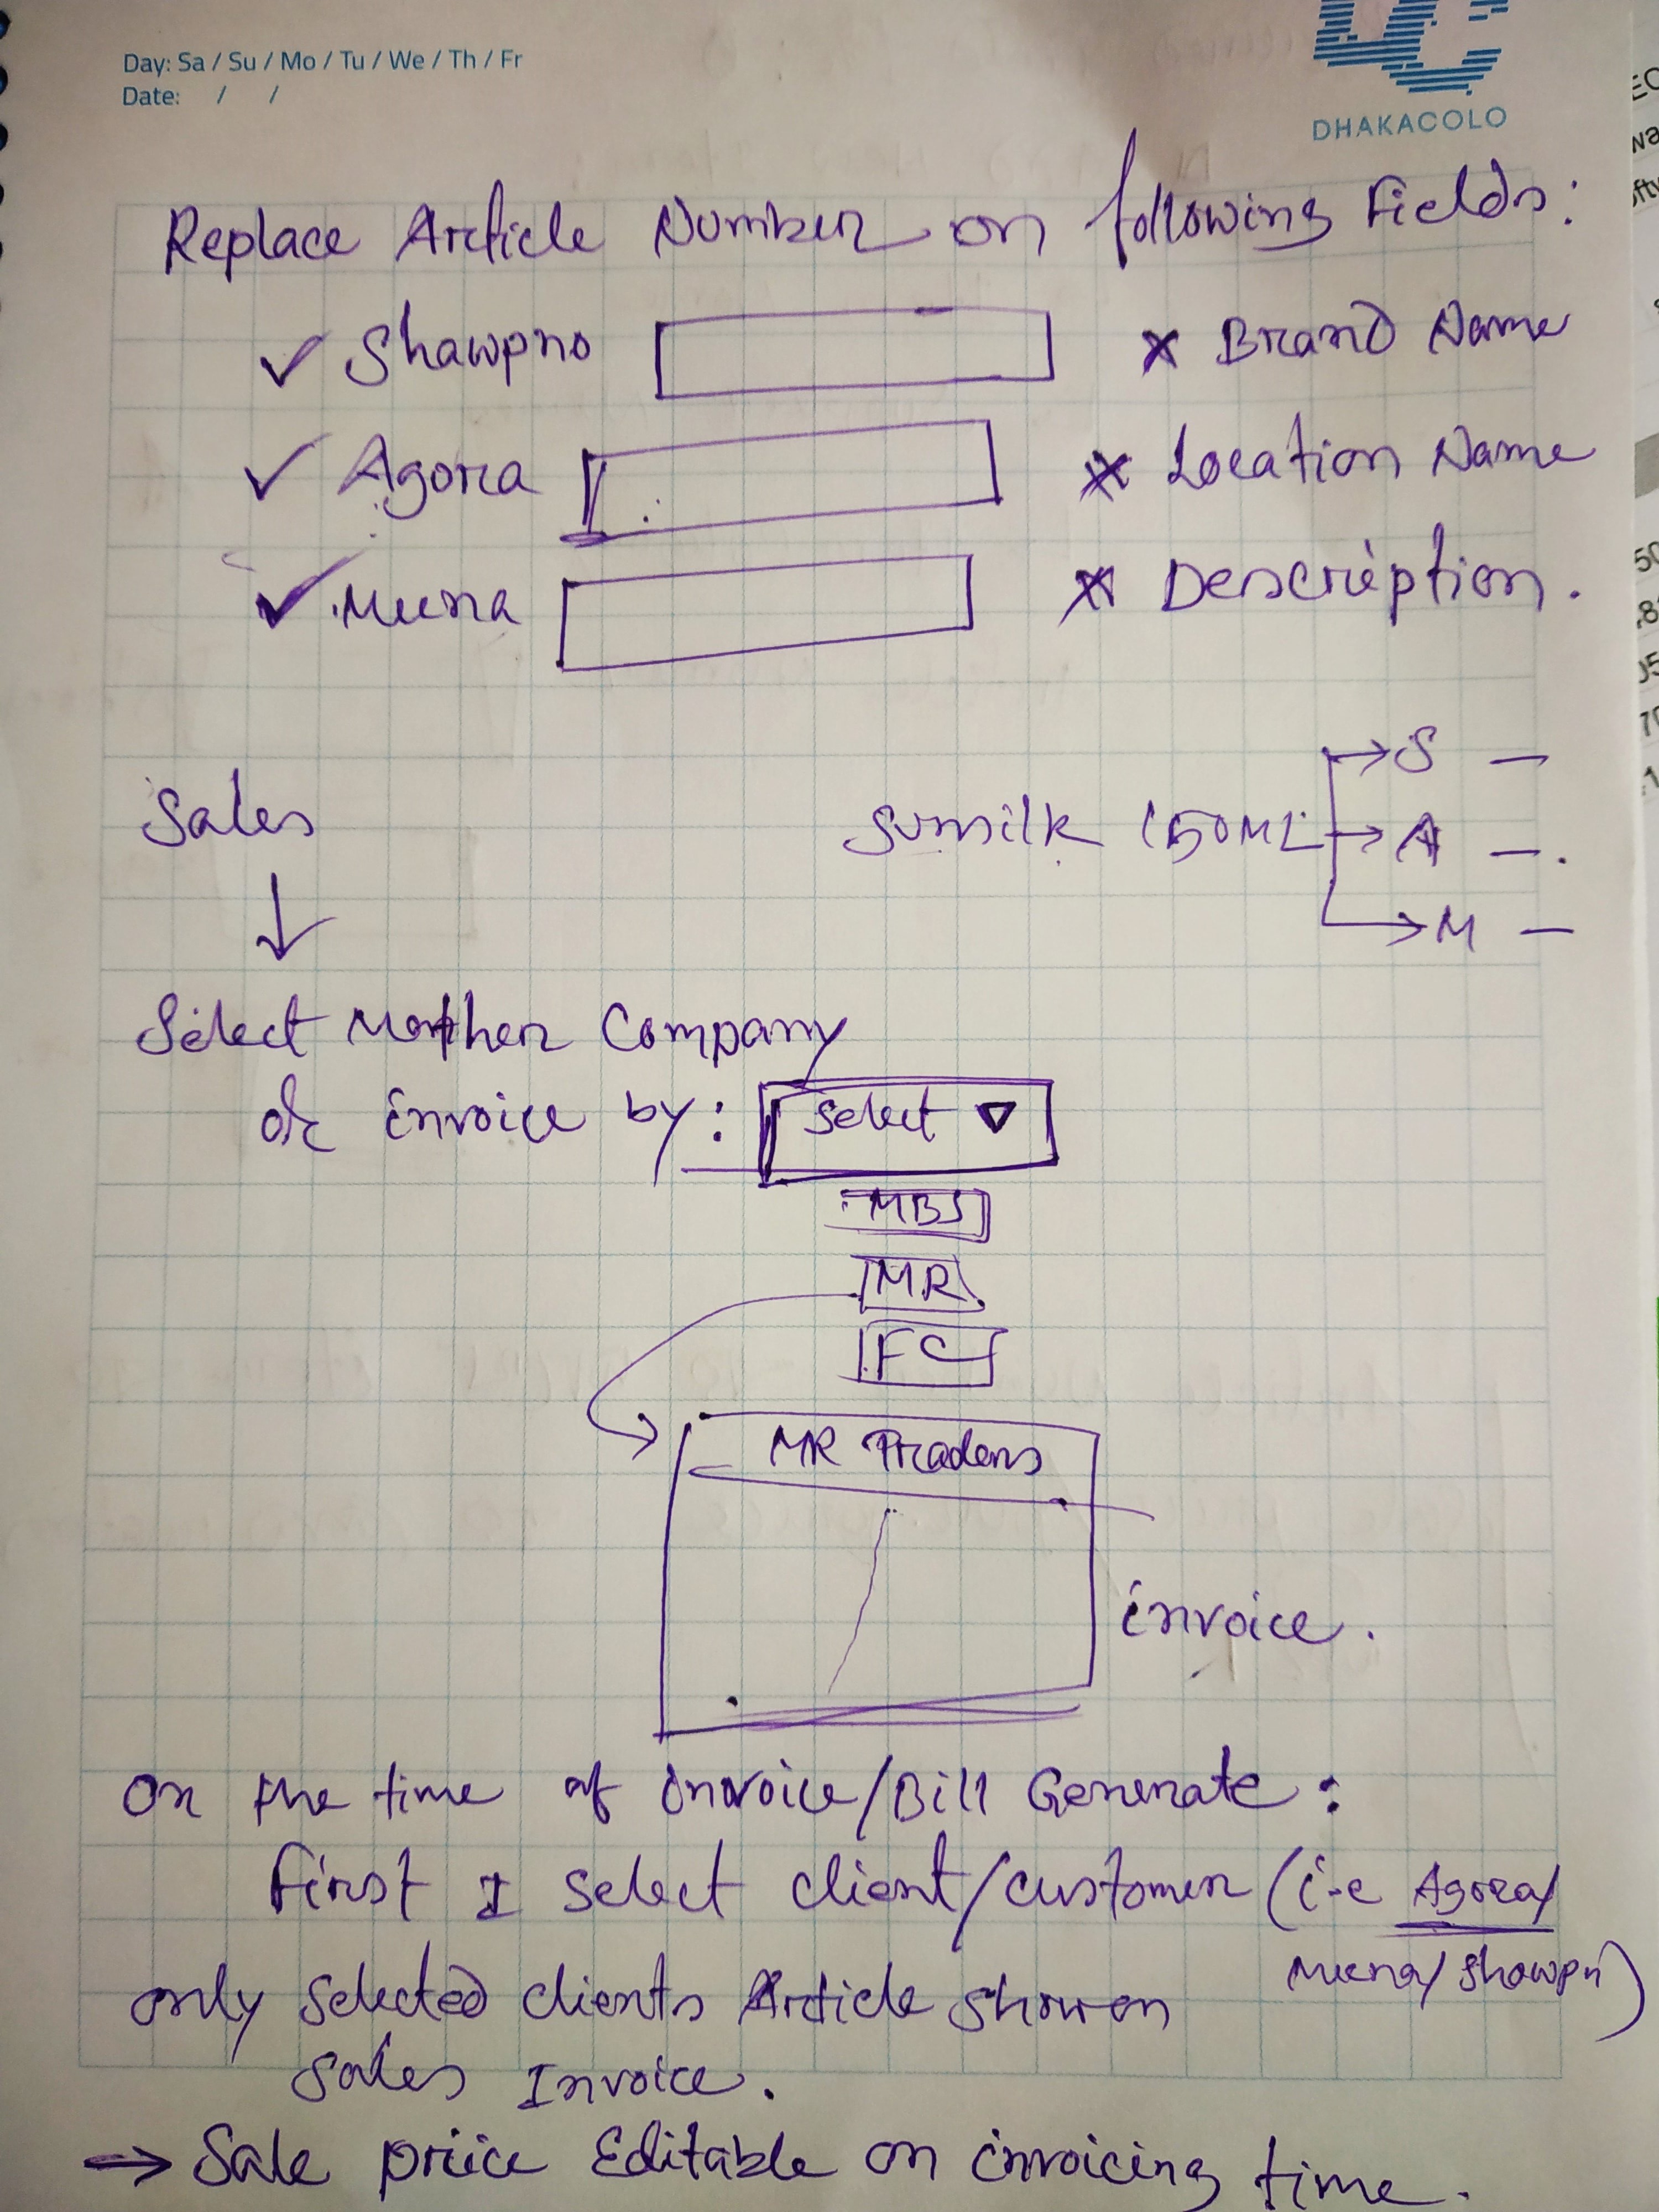 Day: Sa / Su / Mo / Tu / We / Th / Fr
Date: / /
DHAKACOLO
Replace Article Number on following Fields:
✓ Shawpno × Brand Name
✓ Agora × Location Name
✓ Meena × Description.
Sales
Sunsilk 150ML → S —
→ A —.
→ M —
Select Mother Company
or invoice by: Select ▽
MBS
MR
FC
MR Traders
invoice.
On the time of Invoice/Bill Generate:
First I select client/customer (i.e Agora/
Meena/Shawpn)
only selected clients Article show on
Sales Invoice.
→ Sale price Editable on invoicing time.